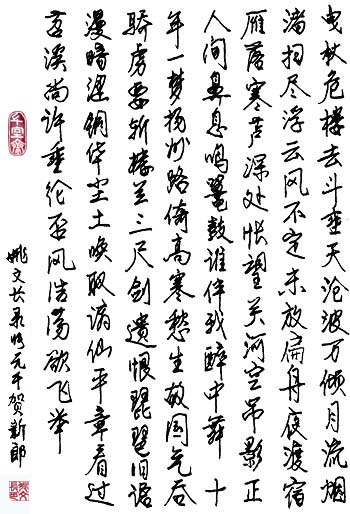 曳杖危楼去斗垂天沧波万顷月流烟
渚扫尽浮云风不定未放扁舟夜渡宿
雁落寒芦深处怅望关河空吊影正
人间鼻息鸣鼍鼓谁伴我醉中舞 十
年一梦扬州路倚高寒愁生故国气吞
骄虏要斩楼兰三尺剑遗恨琵琶旧语
谩暗涩铜华尘土唤取谪仙平章看过
苕溪尚许垂纶否风浩荡欲飞举
姚文长录张元干贺新郎